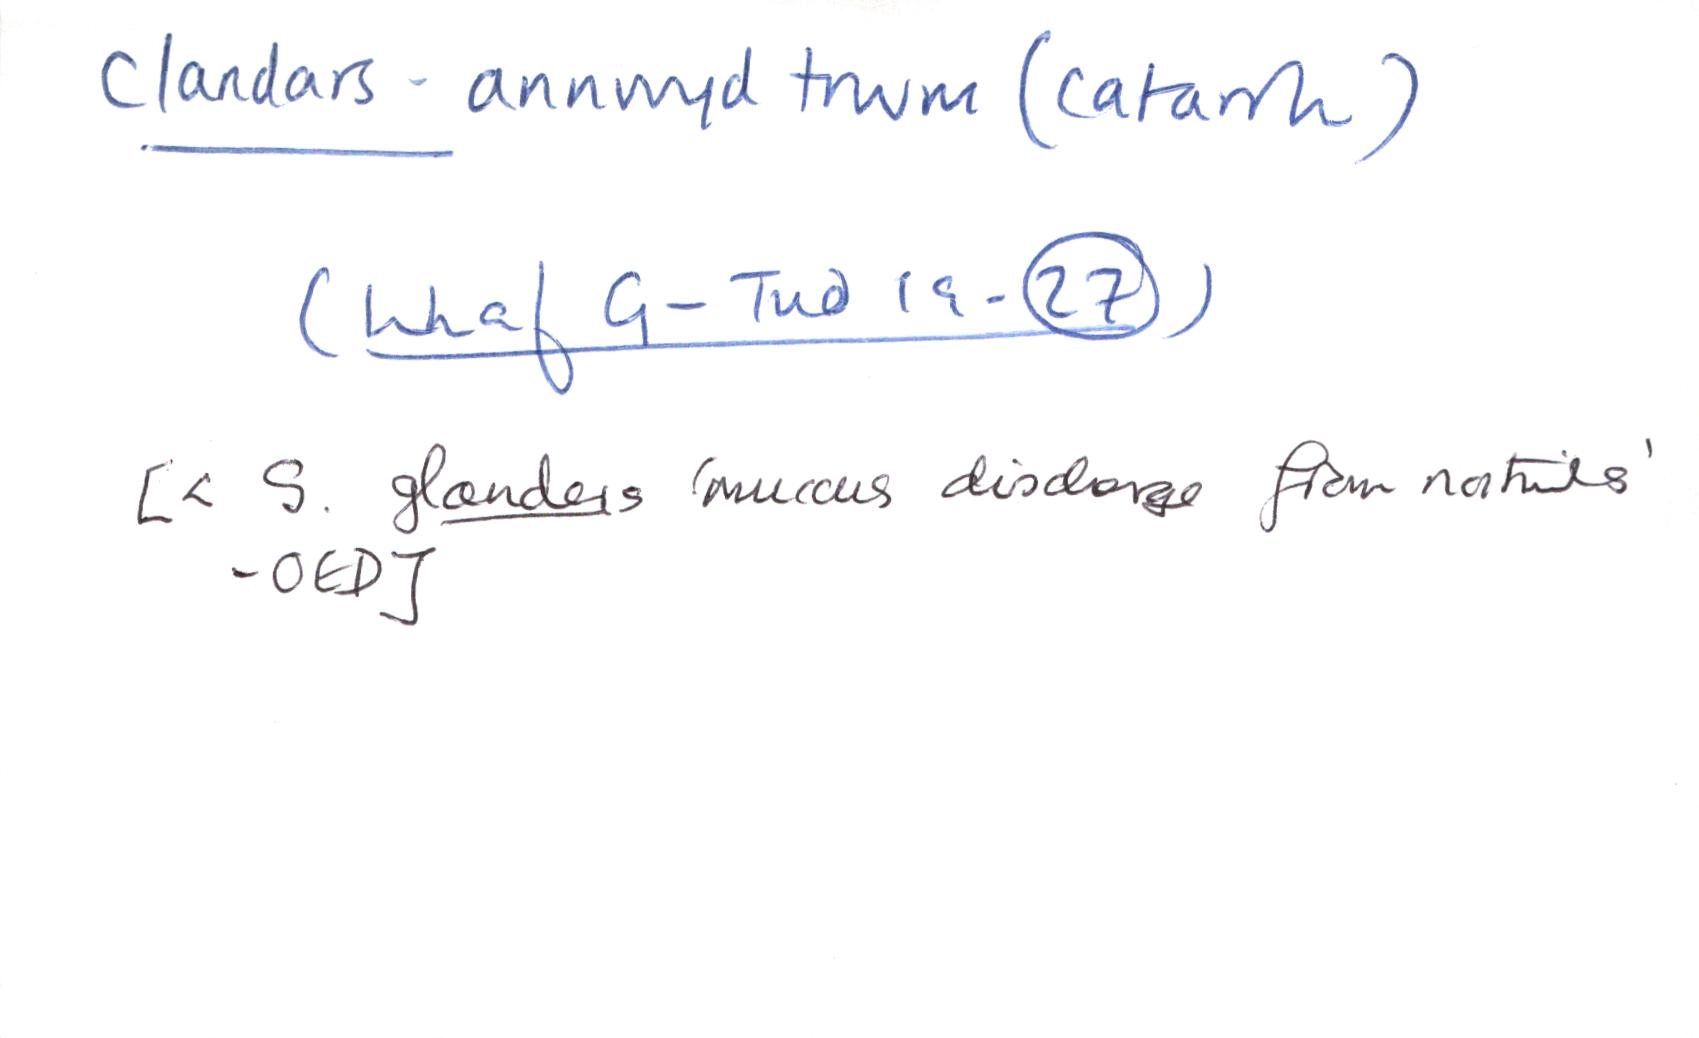 Clandars - annwyd trwm (catarrh)
(Llhaf G - Tud 19 - 27)
[< S. glanders 'muccus discharge from nostrils'
- OED]